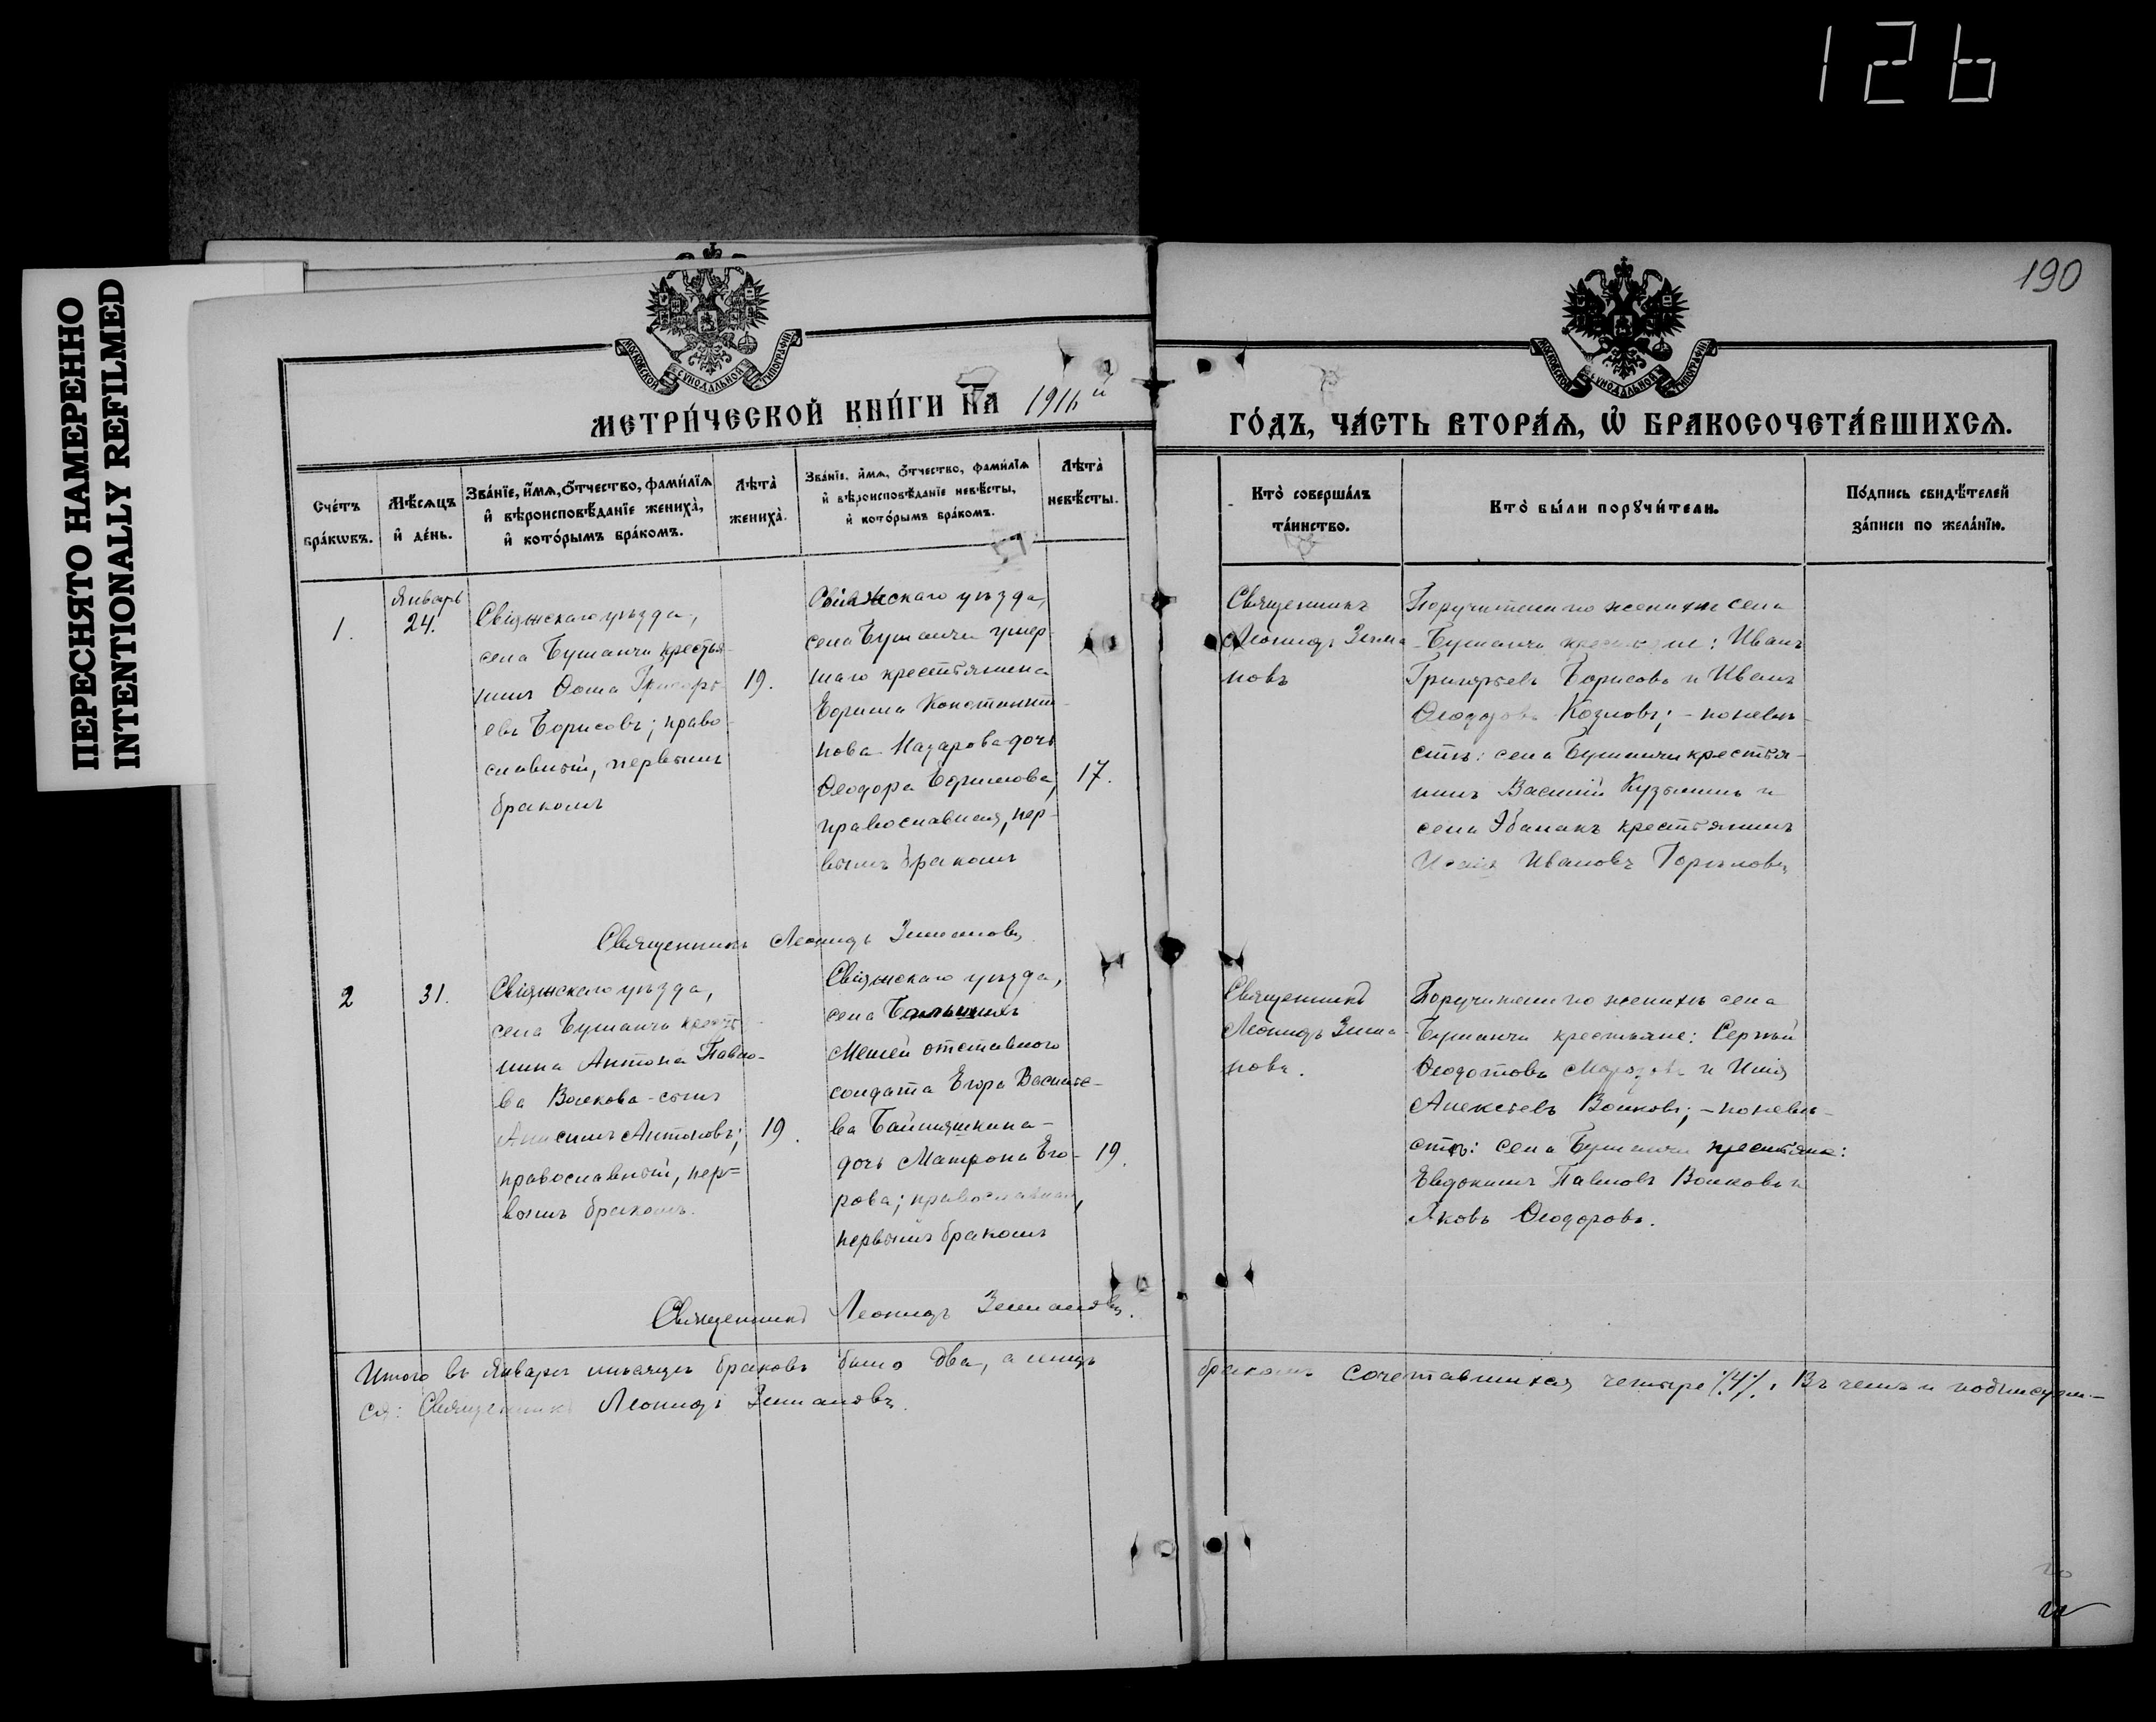 126
ПЕРЕСНЯТО НАМЕРЕННО
INTENTIONALLY REFILMED
190
МОСКОВСКОЙ СѴНОДАЛЬНОЙ ТИПОГРАФІИ
МОСКОВСКОЙ СѴНОДАЛЬНОЙ ТИПОГРАФІИ
МЕТРИ́ЧЕСКОЙ КНИ́ГИ НА 1916й
ГО́ДЪ, ЧА́СТЬ ВТОРА́Я, Ѡ БРАКОСОЧЕТА́ВШИХСЯ.
Сче́тъ
бра́кѡвъ.
Мѣ́сяцъ
и҆ де́нь.
Зва́нїе, и҆́мя, ѻ҆́тчество, фами́лїя
и҆ вѣроисповѣ́данїе жениха̀,
и҆ кото́рымъ бра́комъ.
Лѣта̀
жениха̀.
Зва́нїе, и҆́мя, ѻ҆́тчество, фами́лїя
и҆ вѣроисповѣ́данїе невѣ́сты,
и҆ кото́рымъ бра́комъ.
Лѣта̀
невѣ́сты.
Кто̀ соверша́лъ
та́инство.
Кто̀ бы́ли порꙋчи́тели.
По́дпись свидѣ́телей
за́писи по жела́нїю.
1.
Январь
24.
Свіяжскаго уѣзда,
села Бушанчи крестья-
нинъ Ѳома Григорь-
евъ Борисовъ; право-
славный, первымъ
бракомъ
19.
Свіяжскаго уѣзда,
села Бушанчи умер-
шаго крестьянина
Ефрема Константи-
нова Назарова дочь
Ѳеодора Ефремова,
православная, пер-
вымъ бракомъ
17.
Священникъ
Леонидъ Зима-
новъ
Поручители по женихѣ села
Бушанчи крестьяне: Иванъ
Григорьевъ Борисовъ и Иванъ
Ѳеодоровъ Козловъ; - по невѣ-
стѣ: села Бушанчи крестья-
нинъ Василій Кузьминъ и
села крестьянинъ
Исаія Ивановъ
Священникъ Леонидъ Зимановъ
2
31.
Свіяжскаго уѣзда,
села Бушанчи крестья-
нина Антона Павло-
ва Волкова - сынъ
Анисимъ Антоновъ;
православный, пер=
вымъ бракомъ.
19.
Свіяжскаго уѣзда,
села Большихъ
Мемей отставного
солдата Егора Василье-
ва
дочь Матрона Его-
рова; православная,
первымъ бракомъ
19.
Священникъ
Леонидъ Зима-
новъ.
Поручители по женихѣ села
Бушанчи крестьяне: Сергѣй
Ѳеодотовъ Морозовъ и Илія
Алексѣевъ Волковъ; - по невѣ-
стѣ: села Бушанчи крестьяне:
Евдокимъ Павловъ Волковъ и
Яковъ Ѳеодоровъ.
Священникъ Леонидъ Зимановъ.
Итого въ Январѣ мѣсяцѣ браковъ было два, а лицъ
бракомъ сочетавшихся четыре /4/. Въ чемъ и подписуем-
ся: Священникъ Леонидъ Зимановъ.